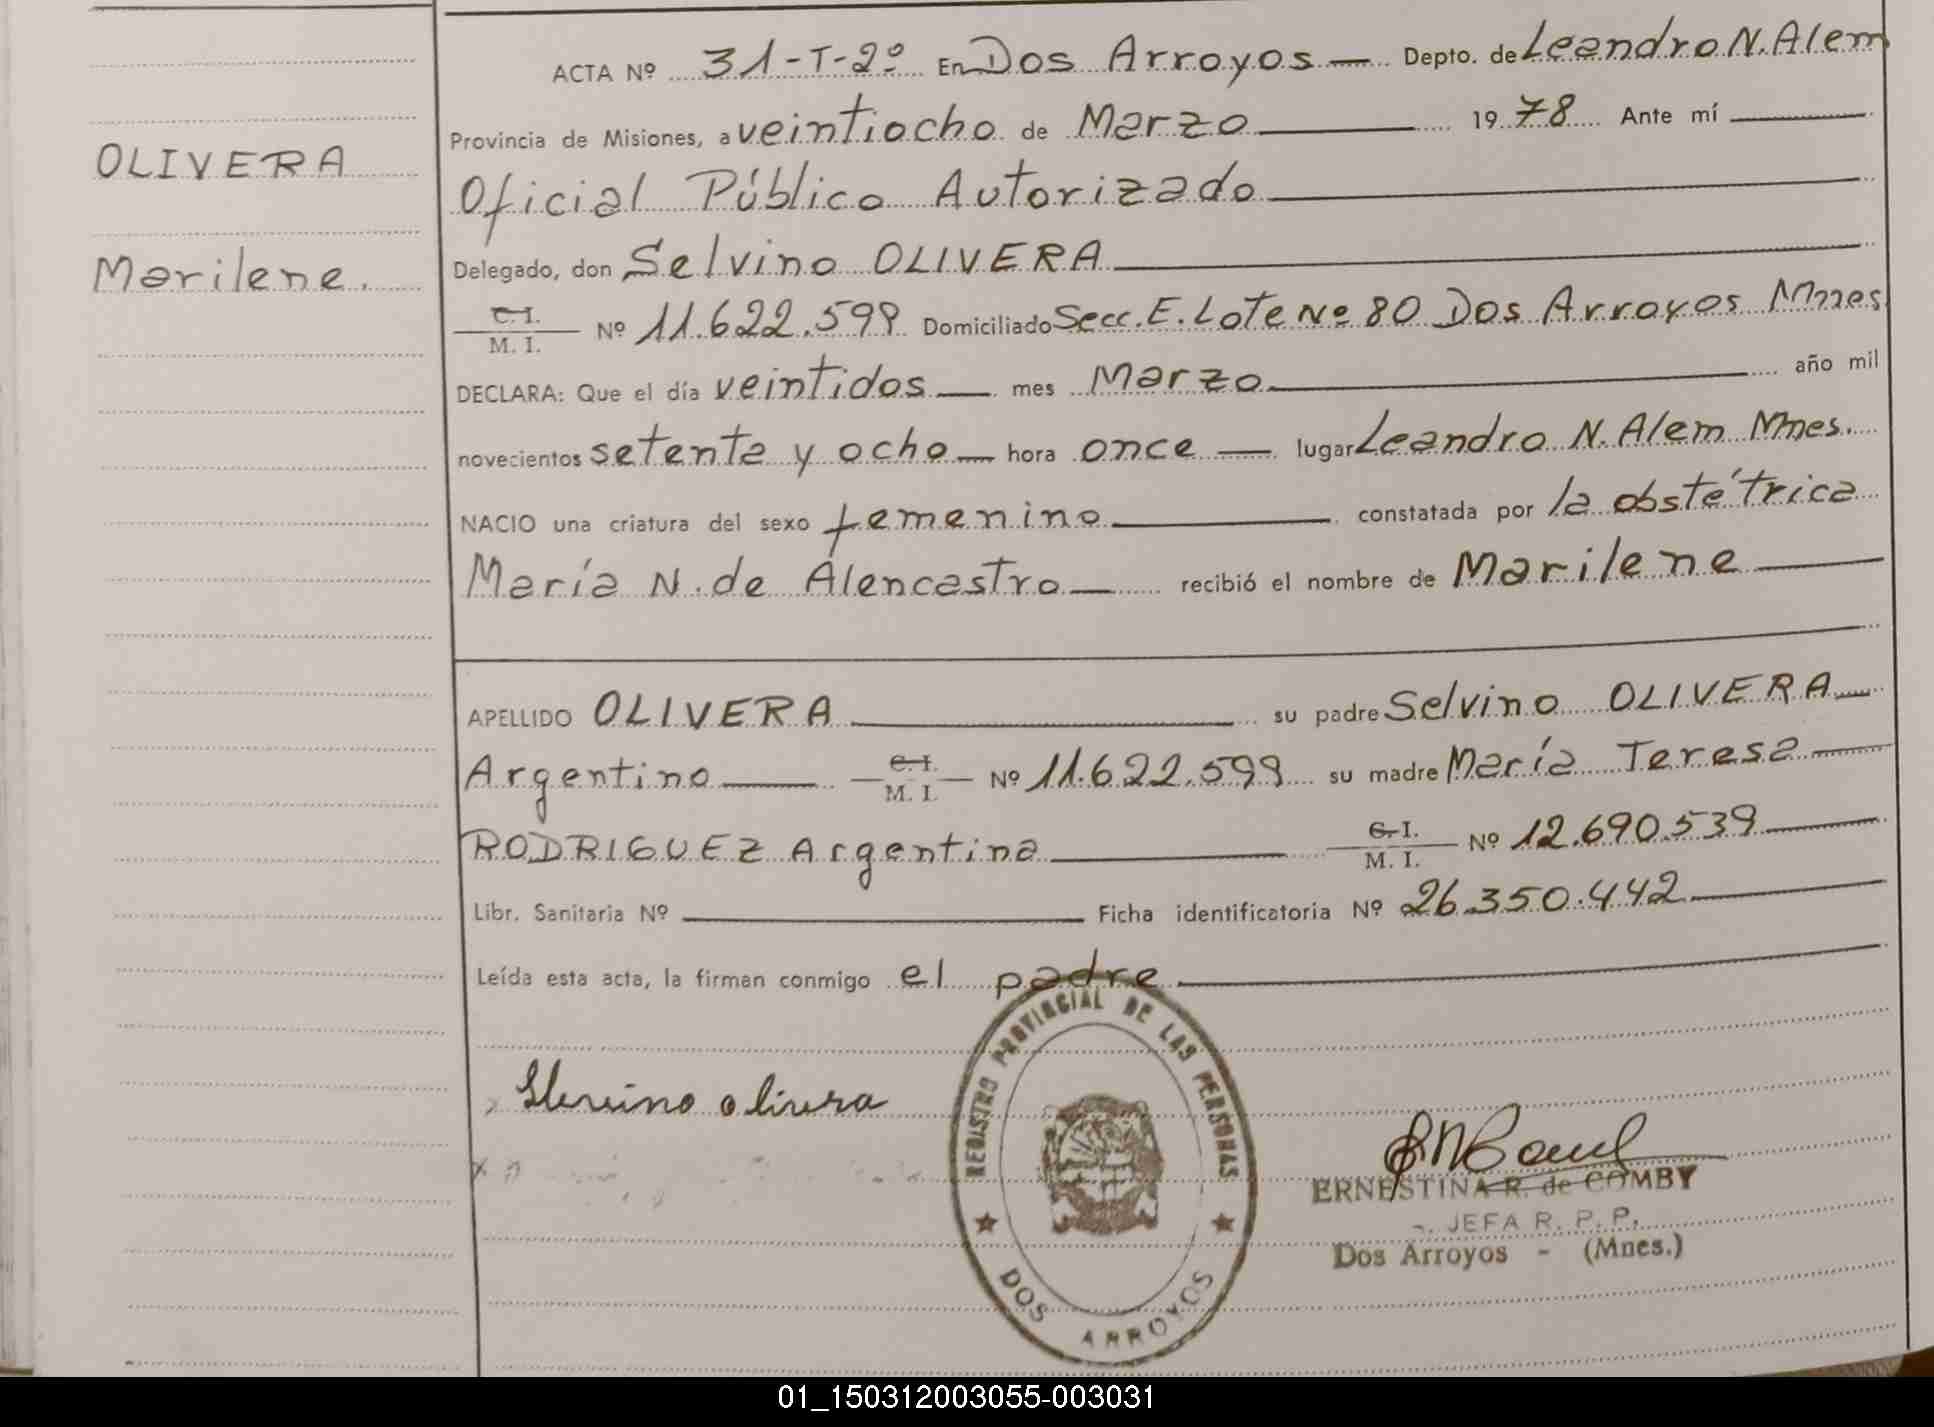 ACTA Nº 31-T-2º En Dos Arroyos — Depto. de Leandro N. Alem
Provincia de Misiones, a veintiocho de Marzo 1978 Ante mí
OLIVERA
Oficial Público Autorizado
Marilene.
Delegado, don Selvino OLIVERA
C. I.
M. I. Nº 11.622.599 Domiciliado Secc. E. Lote Nº 80 Dos Arroyos Mnes
DECLARA: Que el día veintidos — mes Marzo año mil
novecientos setenta y ocho — hora once — lugar Leandro N. Alem Mnes.
NACIO una criatura del sexo femenino constatada por la obstétrica
María N. de Alencastro — recibió el nombre de Marilene
APELLIDO OLIVERA su padre Selvino OLIVERA
Argentino C. I. M. I. Nº 11.622.599 su madre María Teresa
RODRIGUEZ Argentina C. I. M. I. Nº 12.690.539
Libr. Sanitaria Nº Ficha identificatoria Nº 26.350.442
Leída esta acta, la firman conmigo el padre
REGISTRO PROVINCIAL DE LAS PERSONAS
olivera
ERNESTINA R. de COMBY
JEFA R. P. P.
Dos Arroyos - (Mnes.)
DOS ARROYOS
01_150312003055-003031